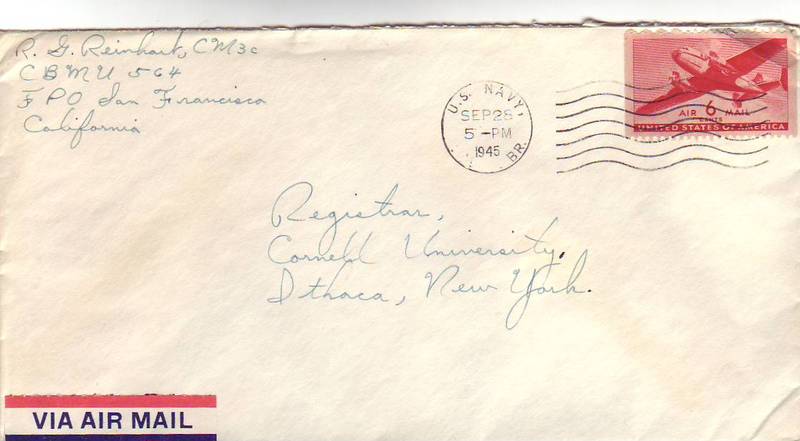 R. G. Reinhart, CM3c
CBMU 564
FPO San Francisco
California
U.S. NAVY,
SEP 28
5 -PM
1945
BR.
AIR 6 MAIL
CENTS
UNITED STATES OF AMERICA
Registrar,
Cornell University,
Ithaca, New York.
VIA AIR MAIL